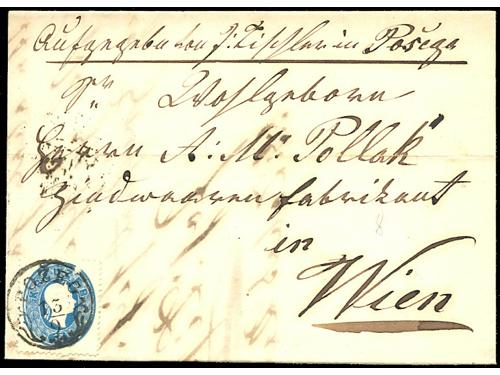 Aufgegeben von J. Tischler in Požega
Sr Wohlgeborn
Herrn A: M: Pollak
Zündwaaren fabrikant
in
Wien